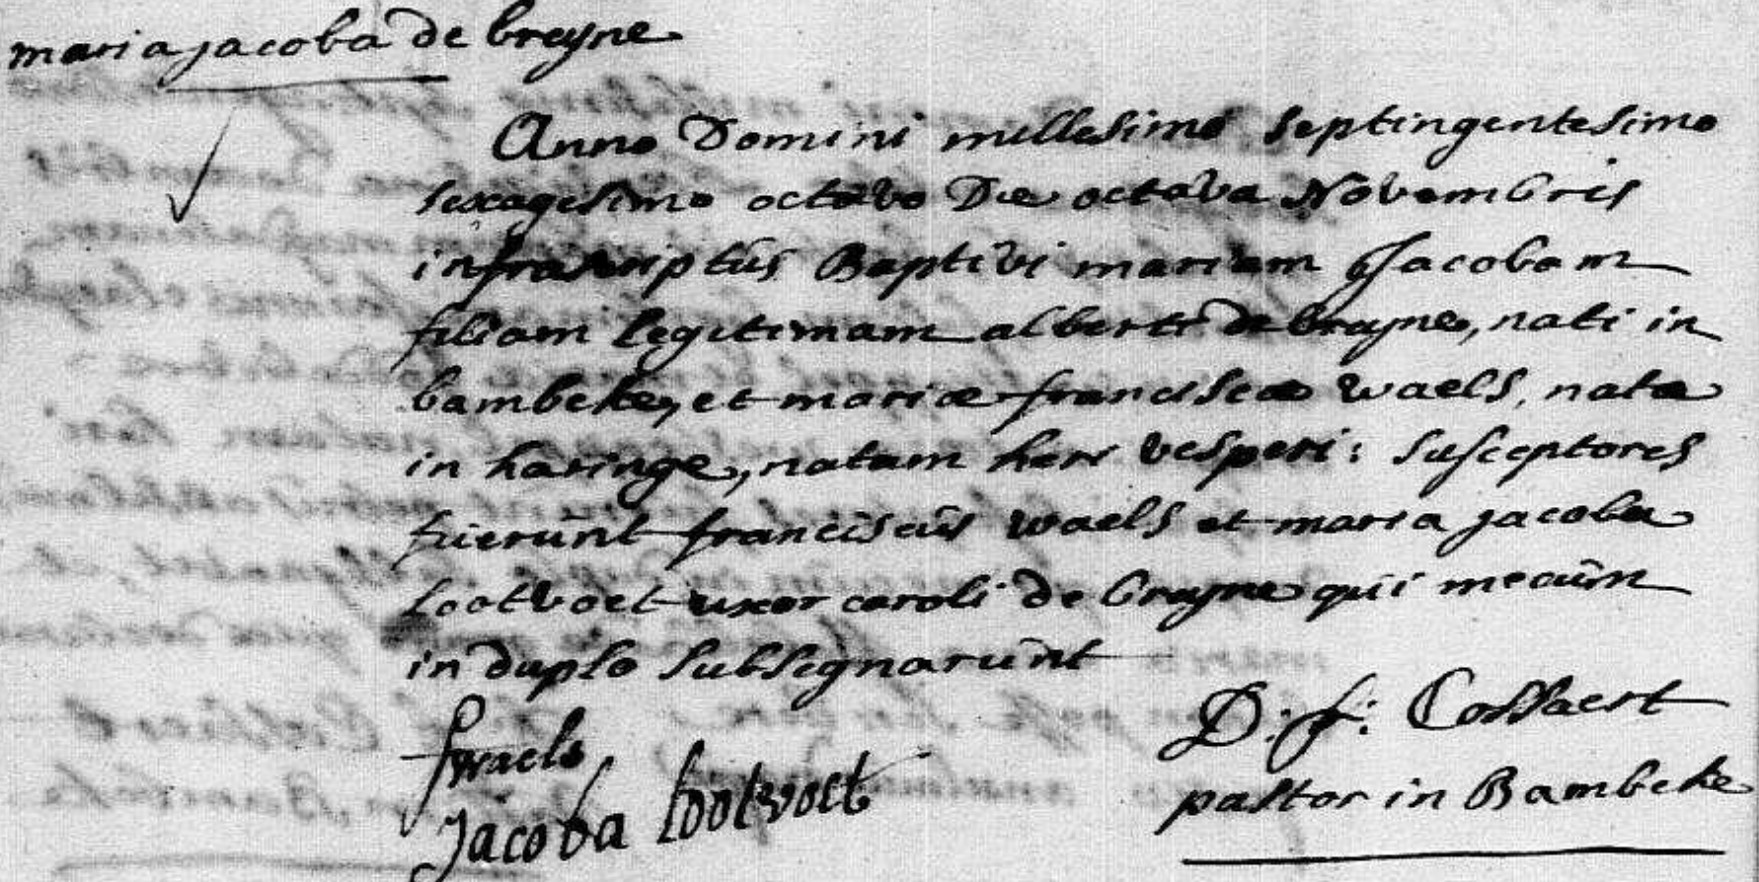 maria jacoba de breyne
Anno Domini millesimo septingentesimo
sexagesimo octavo Die octava Novembris
infrascriptus Baptivi mariam Jacobam
filiam legitimam alberti de breyne, nati in
bambeke, et mariæ franciscæ waels, natæ
in haringe, natam heri vesperi: susceptores
fuerunt franciscus waels et maria jacoba
lootvoet uxor caroli de breyne qui mecum
in duplo subsignarunt
fwaels
Jacoba lootvoet
D: f: Collaert
pastor in Bambeke